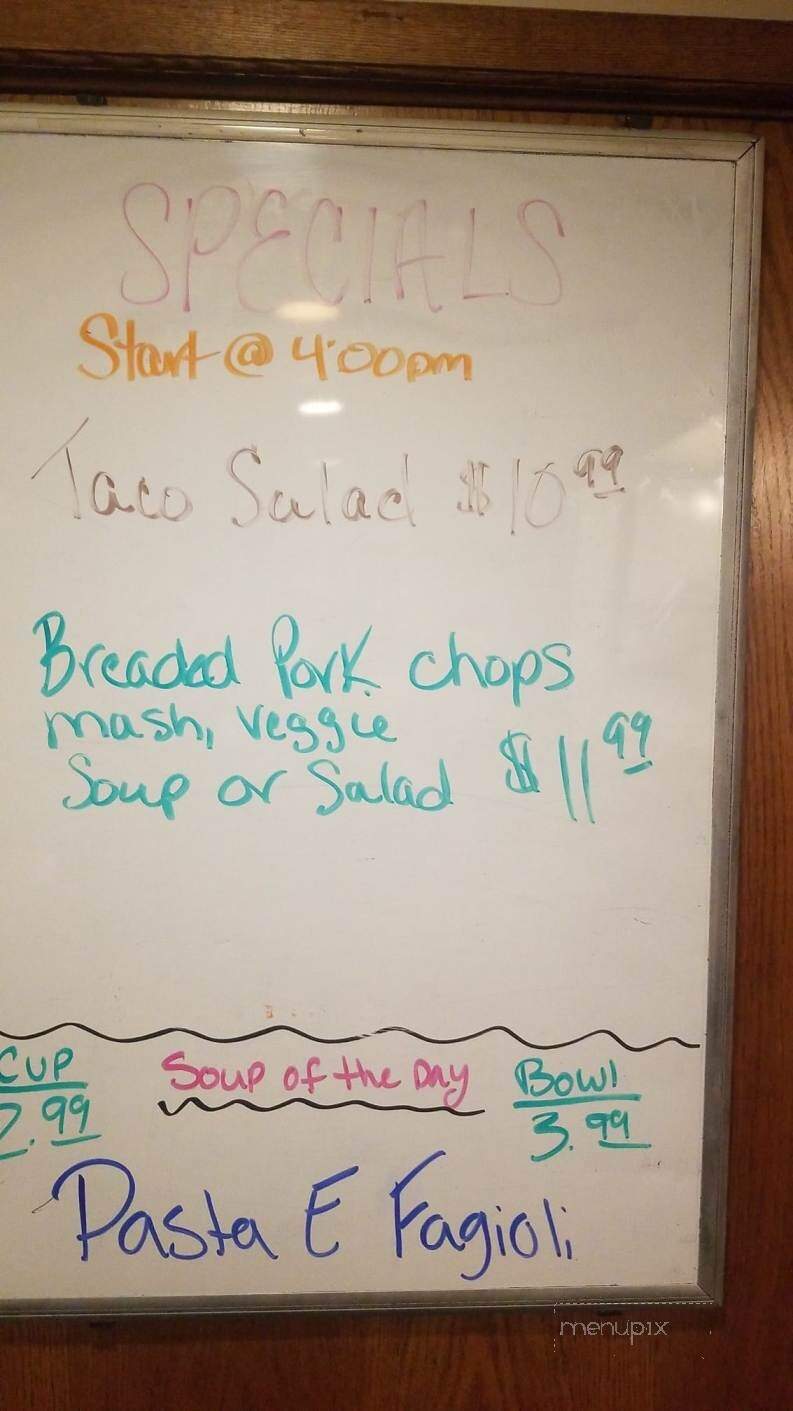 SPECIALS
Start @ 4:00pm
Taco Salad $10 99
Breaded Pork chops
mash, veggie
Soup or Salad $11 99
CUP Soup of the Day Bowl
2.99 3.99
Pasta E Fagioli
menupix